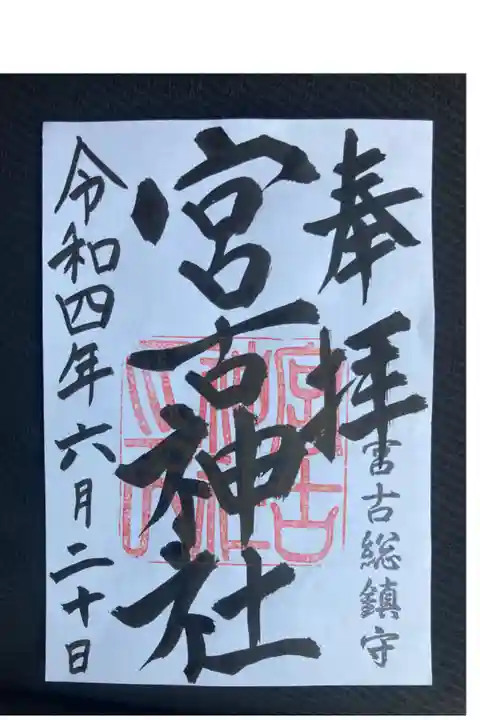 奉拝
宮古総鎮守
宮古神社
令和四年六月二十日